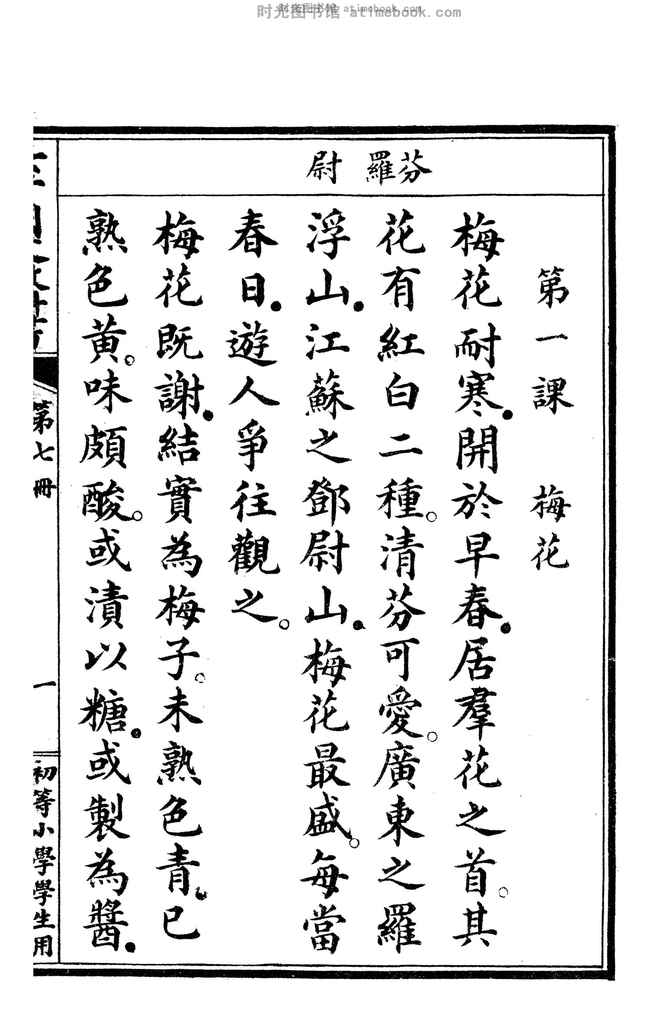 时光图书馆 atimebook.com
芬 羅 尉
第一課 梅花
梅花耐寒。開於早春。居羣花之首。其
花有紅白二種。清芬可愛。廣東之羅
浮山。江蘇之鄧尉山。梅花最盛。每當
春日。遊人爭往觀之。
梅花既謝。結實為梅子。未熟色青。已
熟色黃。味頗酸。或漬以糖。或製為醬。
第七冊
一
初等小學學生用